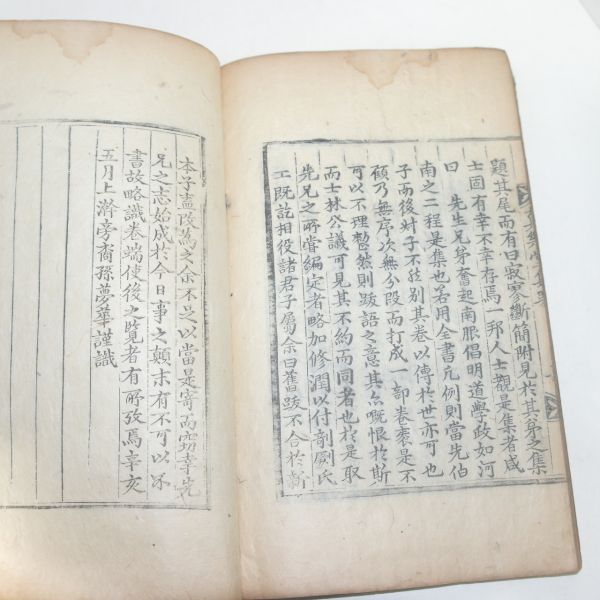 題其尾而有曰寂寥斷簡附見於其身之集
士固有幸不幸存焉一邦人士觀是集者咸
曰　先生兄身奮起南服倡明道學政如河
南之二程是集也若用全書凡例則當先伯
子而後叔子不然別其卷以傳於世亦可也
顧乃無序次無分段而打成一部卷袠是不
可以不理整然則跋語之意其亦慨恨於斯
而士林公議可見其不約而同者也於是取
先兄之所嘗編定者略加修潤以付剞劂氏
工旣訖相役諸君子屬余曰舊跋不合於新
本子盍改爲之余不足以當是寄而窃幸先
兄之志始成於今日事之顚末有不可以不
書故略識卷端使後之覽者有所攷焉辛亥
五月上澣旁裔孫夢華謹識